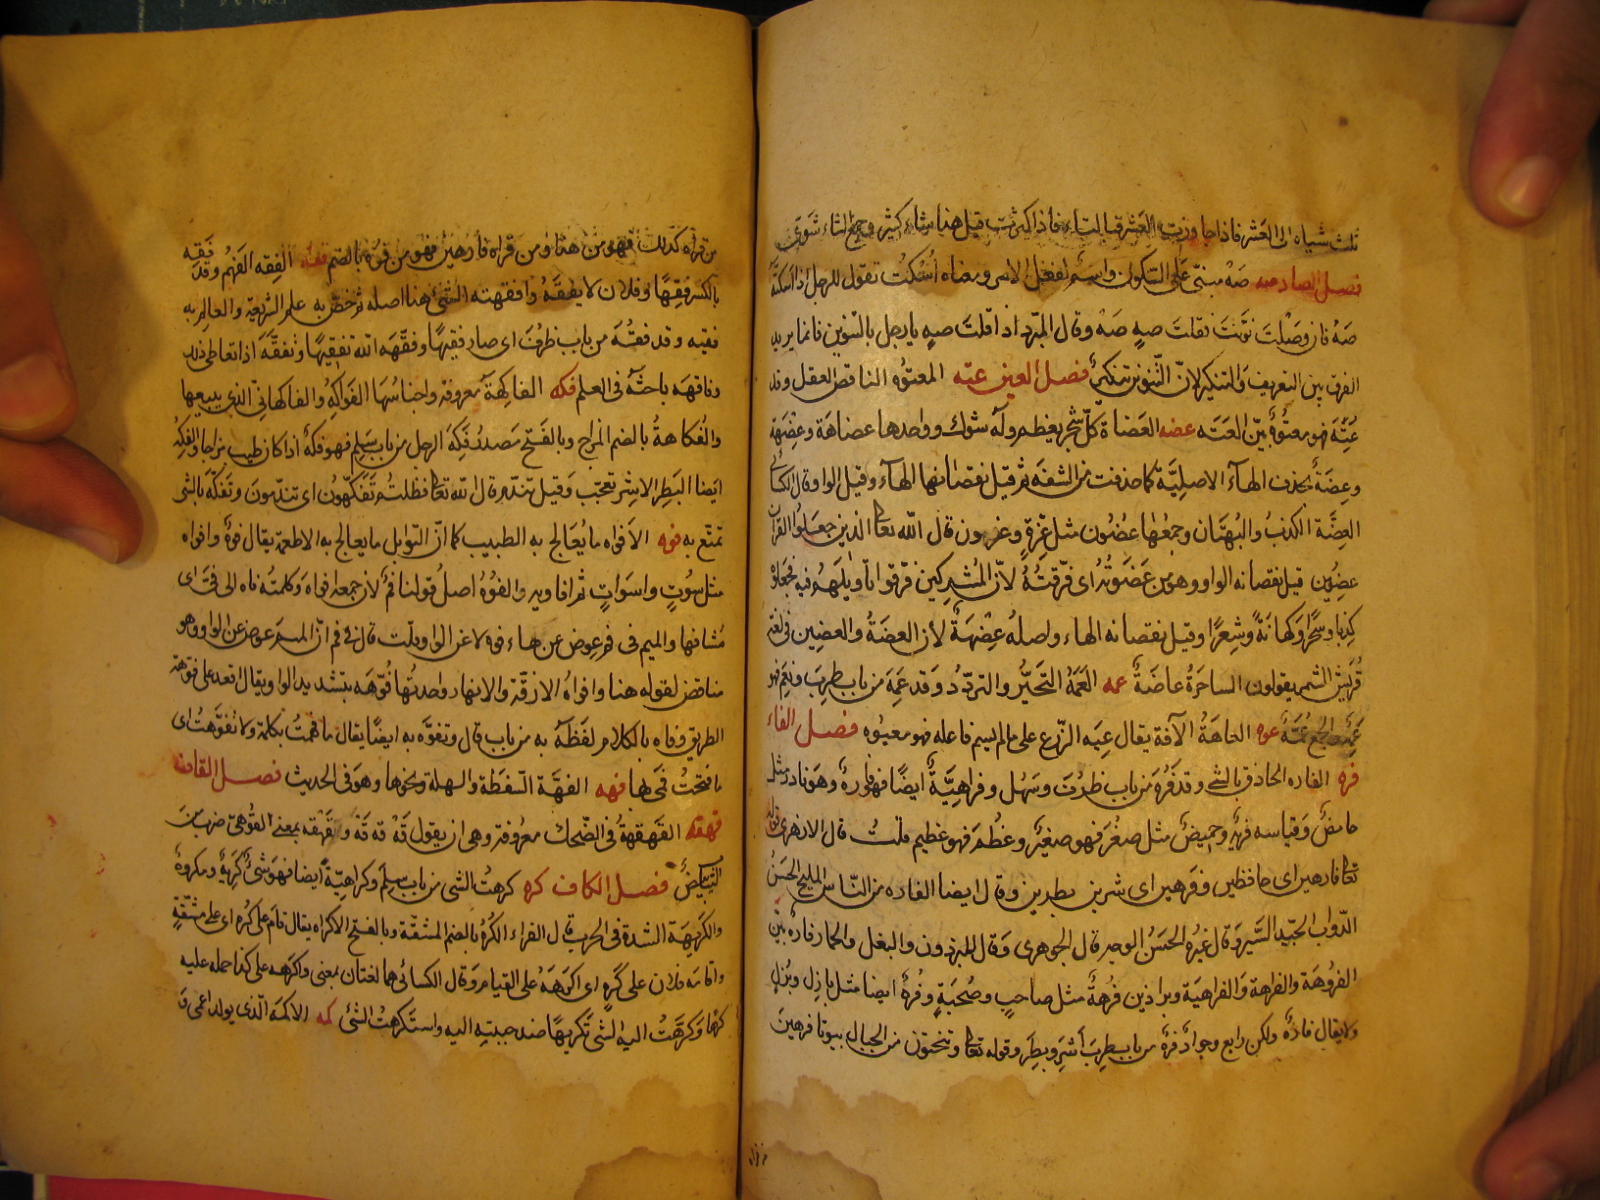 ثلث شياه الى العشر فاذا جاوزت العشر فبالتاء فاذا كثرت قيل هذا شاء كثير وجمع الشاء شَوِيّ
فصل الصاد صه صَهْ مبنىّ على السّكون واسم لفعل الامر ومعناه اُسْكُتْ تقول للرجل اذا اسكتّه
صَهْ فان وَصَلْتَ نوّنتَ فقلتَ صهٍ صَهْ وقال المبرّد اذا قلتَ صهٍ يا رجل بالتّنوين فانما يريد
الفرق بين التعريف والتنكير لانّ التّنوين تنكيرٌ فصل العين عته المعتوُه الناقص العقل وقد
عُتِهَ فهو معتوُهٌ بيّن العَتَه عضه العَضاة كلّ شجر يعظم وله شوك وواحدها عضاهَة وعِضَهة
وعِضَةٌ بحذف الهآء الاصليّة كما حذفت من الشفَه ثم قيل نقصانها الهآء وقيل الواو قال الكسائى
العِضَة الكذبُ والبُهتان وجمعُها عِضُون مثل عِزّةٍ وعزون قال الله تعالى الذين جعلوُا القرآن
عضين قيل نقصانه الواو وهو من عَضَوتُه اى فرّقتُهُ لانّ المشركين فرّقوا اقاويلهم فيه فجعلوه
كذبا وسِحْرًا وكهانَةً وشِعرًا وقيل نقصانه الهاء واصلهُ عِضْهَةٌ لان العضَةَ والعضِين فى لغة
قُريش السّحر يقولون الساحرَة عاضَةٌ عمه العَمَهُ التحيُّر والتردّد وقد عَمِهَ من باب طرِبَ فهو
عَمِهٌ والجمع عُمَّهٌ عوه العاهَةُ الآفة يقال عِيهَ الزّرع على مالم يسم فاعله فهو معيُوه فصل الفاء
فره الفاره الحاذق بالشئ وقد فَرُهَ من باب ظرُفَ وسَهُل وفراهِيَةً ايضًا فهو فارهٌ وهو نادر مثل
حامضٌ وقياسه فرِيهٌ وحميضٌ مثل صغُرَ فهو صغيرٌ وعظُمَ فهو عظيم قلتُ قال الازهرى قوله
تعالى فارهين اى حاذقين وفَرِهين اى شرين بطرين وقال ايضا الفاره من النّاس المليح الحَسَنُ ومن
الدّوابّ الجيّد السّير وقال غيرُه الحَسَنُ الوجه قال الجوهرى وقال للبرذون والبغل والحمار فارهٌ بيّن
الفرُوهَة والفراهة والفراهيَة وبراذين فُرْهَةٌ مثل صاحبٍ وصُحبَةٍ وفُرْهٌ ايضا مثل بازِل وبُزْل
ولا يقال فارهٌ ولكن رايع وجوادٌ فرِهٌ من باب طرِبَ اَشِرَ وبطِرَ وقوله تعالى وتنحتون من الجبال بيوتا فرهينَ
من قرأه كذلك فهو من هذا ومن قرأه فارهين فهو من فَرُهَ بالضم فقه الفِقه الفَهمُ وقد فَقِهَ
بالكسر فِقهًا وفلان لا يفقَهُ وافقهته الشئ هذا اصله ثم خصّ به علم الشّريعة والعالم به
فقيه وقد فقُهَ من باب ظرُفَ اى صار فقيهًا وفقّهَه الله تفقيهًا وتفقّهَ اذا تعاطى ذلك
وفاقهَه باحثهُ فى العلم فكه الفاكِهةُ معروفة واجناسُها الفَواكِهُ والفاكهانىّ الذى يبيعها
والفُكاهةُ بالضم المزاح وبالفَتح مَصدر فَكِهَ الرجل من باب سَلِم فهو فَكِهٌ اذا كان طيب مزّاحا والفَكِهُ
ايضا البَطِر الاشِر وتفكّه تعجّب وقيل تندّم قال الله تعالى فظلتم تفكّهون اى تندّمون وتفكّه بالشئ
تمتّع به فوه الافواه ما يُعَالج به الطيب كما انّ التّوابل ما يعالج به الاطعمة يقال فوهٌ وافواه
مثل سُوقٍ واسواقٍ ثم افاويه والفُوهُ اصلُ قولنا فمٌ لان جمعه افواه وكلمتُه فاه الى فىّ اى
مُشافها والميم فى فم عوض عن هاء فوه لا عن الواو قلت قال فى فم انّ الميم عوض عن الواو وهو
مناقض لقوله هنا وافواهُ الازقّة والانهار واحدتُها فُوّهَه بتشديد الواو ويقال اقعد على فوّهة
الطريق وفاه بالكلام لفظَ به من باب قال وتفوّه به ايضًا يقال ما فهتُ بكلمة ولا تفوّهتُ اى
ما فتحتُ فمى بها فهه الفهّة السّقطَة والجهلة ونحوها وهو فى الحديث فصل القاف
قهقه القهقهةُ فى الضّحك معروفة وهى ان يقول قَهْ قَهْ وقهقه بمعنى القُوهىّ ضرب من
الثياب بيضٌ فصل الكاف كره كرهتُ الشئ من باب سلِمَ وكراهِيَةً ايضا فهو شئٌ كَرِيهٌ ومكروهٌ
والكريهة الشدة فى الحرب قال الفراء الكُرْهُ بالضم المشقّة وبالفتح الاكراه يقال قام على كُره اى على مشقّةٍ
واقامه فلان على كَرهٍ اى اكرهَهُ على القيام وقال الكسائى هما لغتان بمعنى واكرهه على كذا حمله عليه
كرها وكرّهتُ اليه الشّئ تكريهًا ضد حببته اليه واستكرهتُ الشئ كمه الاكمَهُ الّذى يولد اعمى وقد